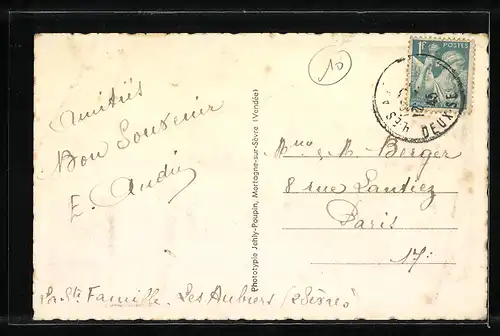 Amitiés
Bon Souvenir
E. Audin
10
1F POSTES
DEUX-SÈ
Phototypie Jehly-Poupin, Mortagne-sur-Sèvre (Vendée)
Mme & M. Berger
8 rue Lantiez
Paris
17e
La Ste Famille. Les Aubiers (2 Sèvres)